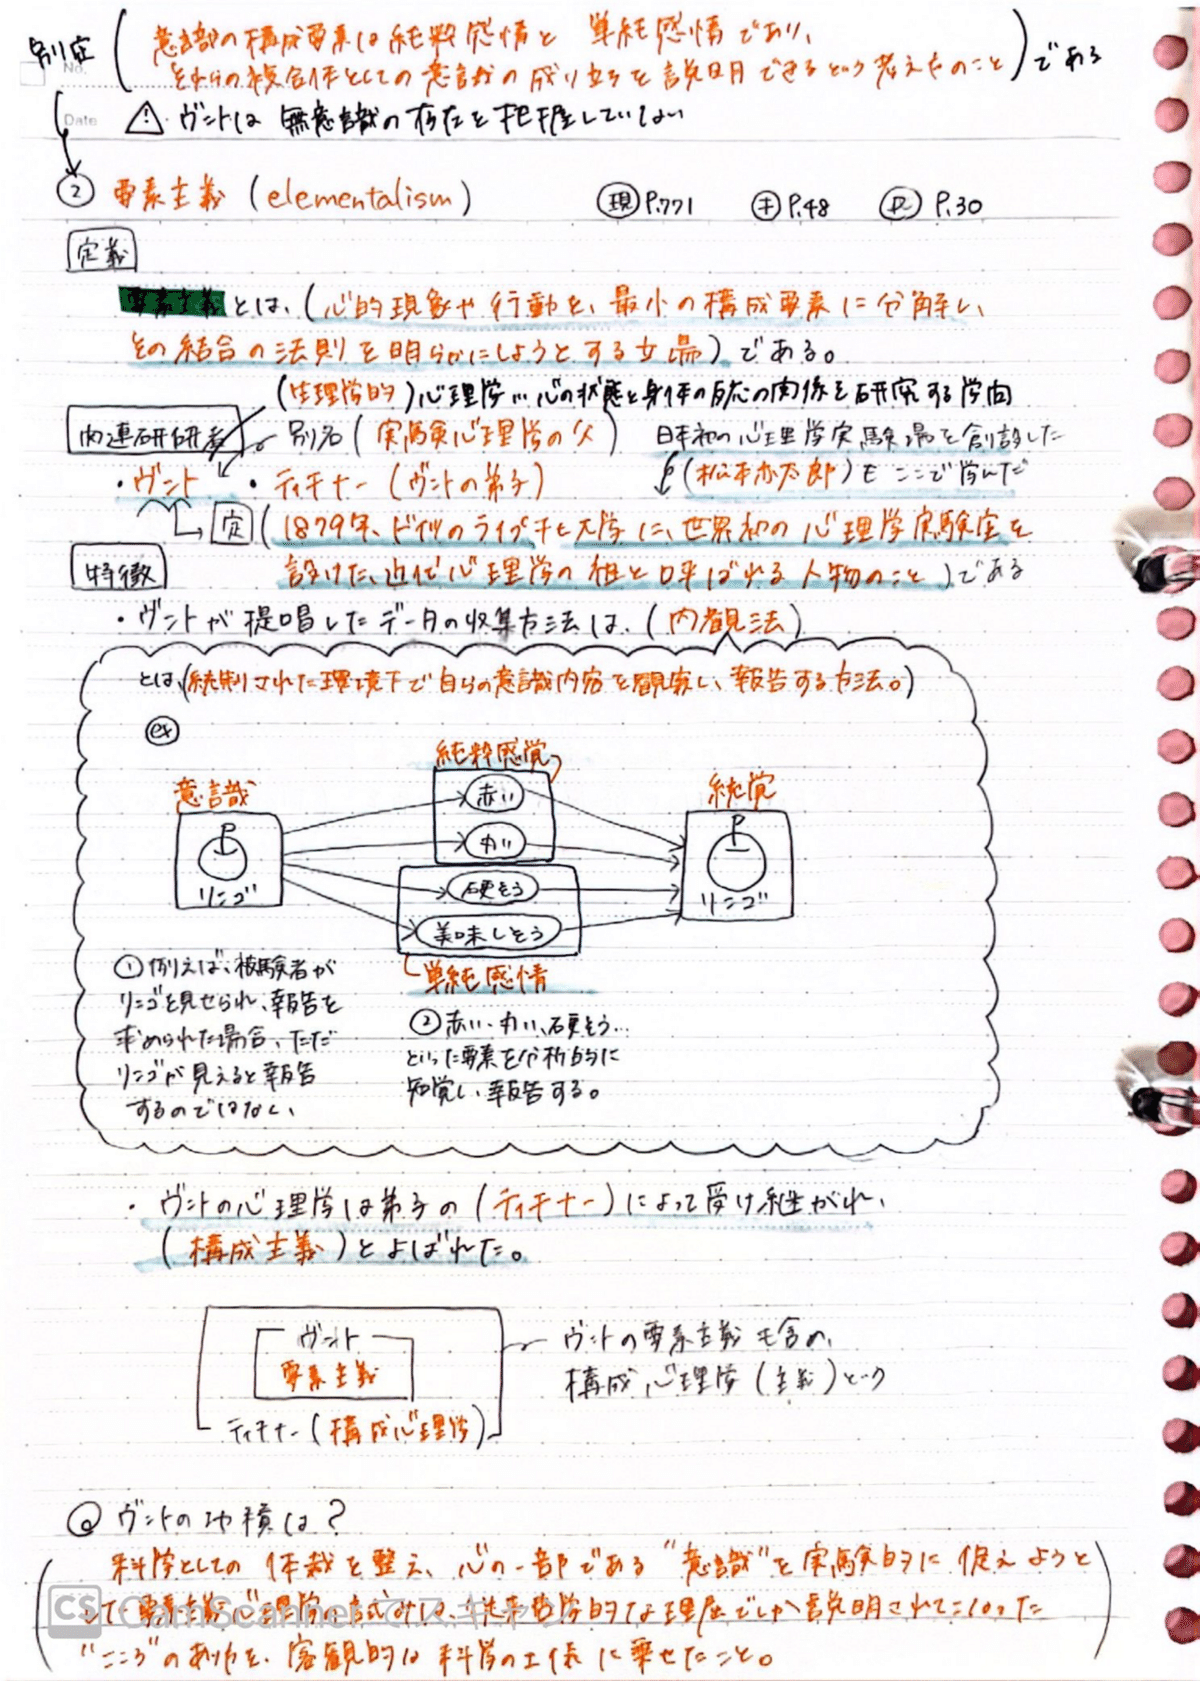 別定（意識の構成要素は純粋感情と 単純感情であり、
それらの複合体としての意識の成り立ちを説明できるという考え方のこと）である
No.
Date
⚠ ヴントは無意識の存在を把握していない
② 要素主義（elementalism） 現 P.771 キ P.48 P.30
定義
要素主義とは、（心的現象や行動を、最小の構成要素に分解し、
その結合の法則を明らかにしようとする立場）である。
（生理学的）心理学…心の状態と身体の反応の関係を研究する学問
関連研究者 別名（実験心理学の父） 日本初の心理学実験場を創設した
・ヴント ・ティチナー（ヴントの弟子）（松本亦太郎）もここで学んだ
定（1879年、ドイツのライプチヒ大学に、世界初の心理学実験室を
特徴 設けた、近代心理学の祖と呼ばれる人物のこと）である
・ヴントが提唱したデータの収集方法は、（内観法）
とは（統制された環境下で自らの意識内容を観察し、報告する方法。）
ex
純粋感覚
意識 赤い 統覚
丸い
リンゴ 硬そう リンゴ
美味しそう
単純感情
①例えば、被験者が
リンゴを見せられ、報告を
求められた場合、ただ
リンゴが見えると報告
するのではない、
②赤い、丸い、硬そう…
といった要素を分析的に
知覚し、報告する。
・ヴントの心理学は弟子の（ティチナー）によって受け継がれ、
（構成主義）とよばれた。
ヴント
要素主義
ティチナー（構成心理学）
ヴントの要素主義も含め、
構成心理学（主義）という
Q ヴントの功績は？
（科学としての体裁を整え、心の一部である“意識”を実験的に捉えようと
した要素主義心理学の試みは、従来哲学的な理屈でしか説明されてこなかった
“こころ”のあり方を、客観的な科学の土俵に乗せたこと。）
CS CamScannerでスキャン